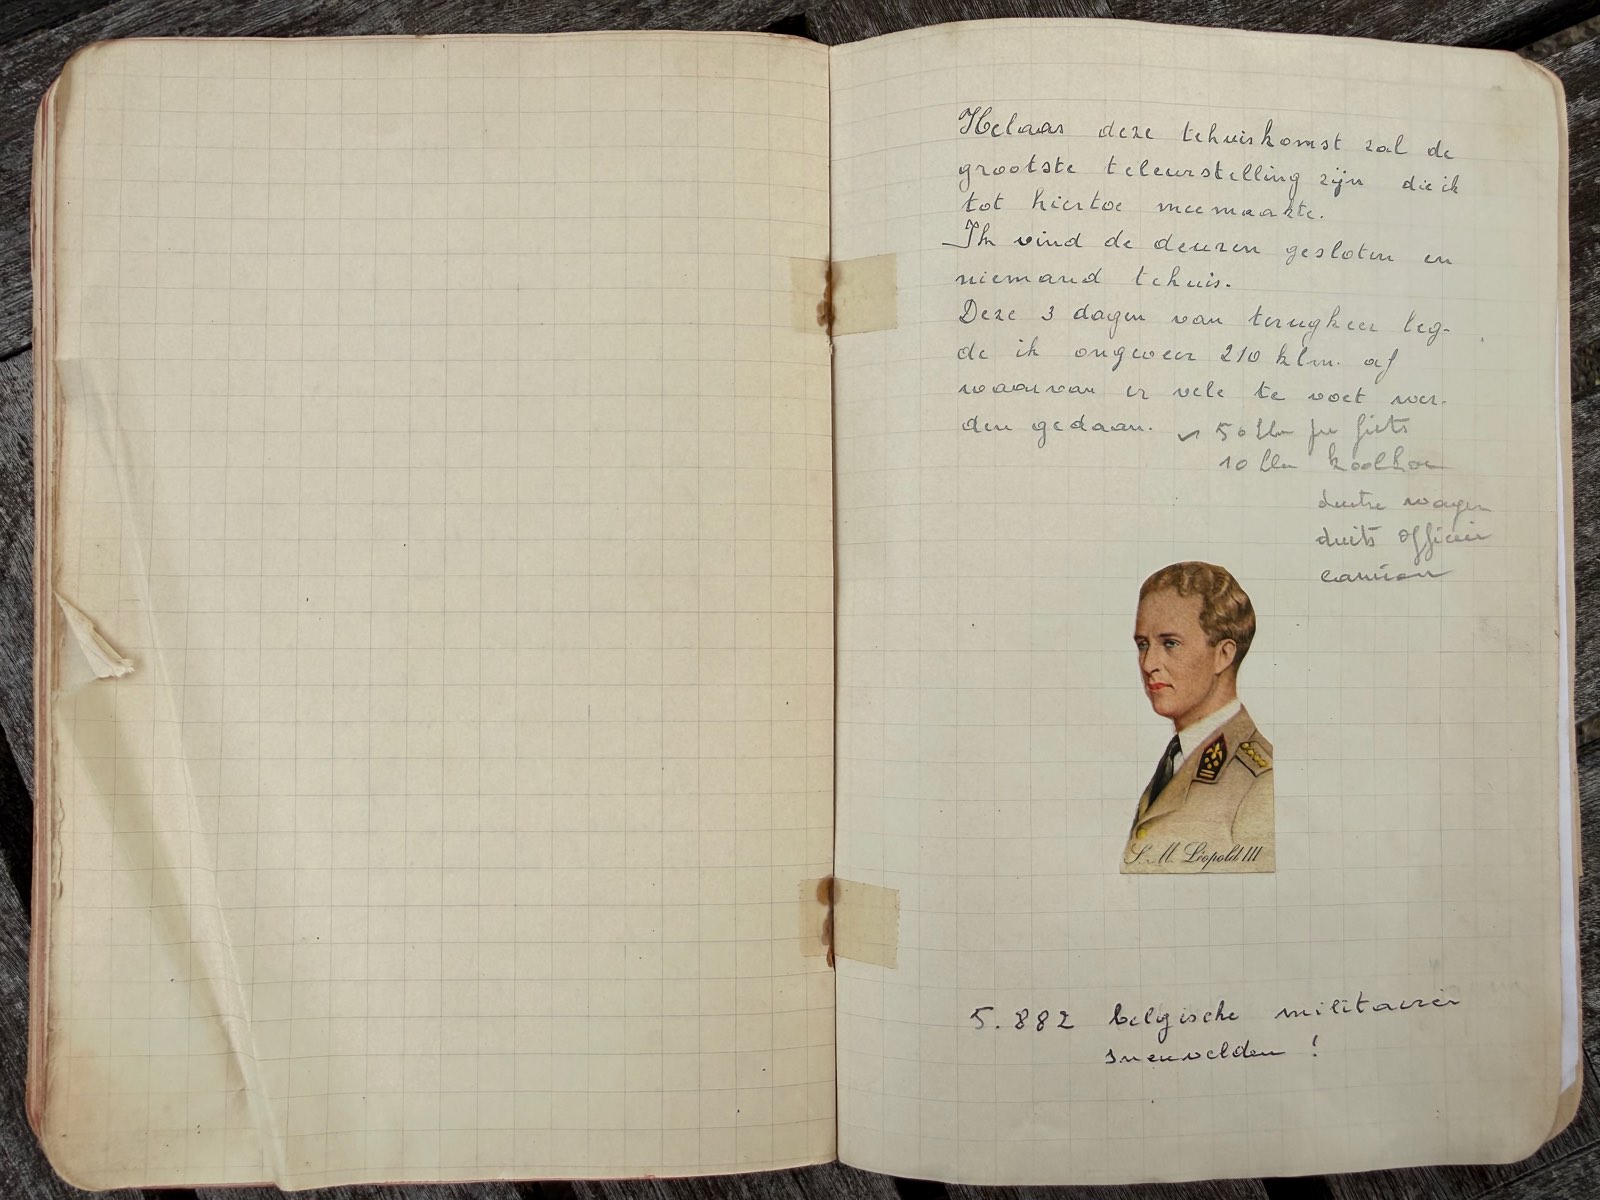 Helaas deze tehuiskomst zal de
grootste teleurstelling zijn die ik
tot hiertoe meemaakte.
Ik vind de deuren gesloten en
niemand tehuis.
Deze 3 dagen van terugkeer leg-
de ik ongeveer 210 klm. af
waarvan er vele te voet wer-
den gedaan. 50 klm per fiets
10 klm
duitse wagen
duits officier
camion
S. M. Léopold III
5.882 belgische militairen
sneuvelden !